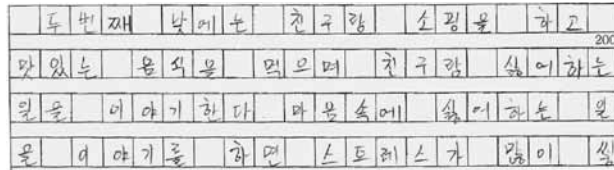 두 번째 낮에는 친구랑 쇼핑을 하고
200
맛있는 음식을 먹으며 친구랑 싫어하는
일을 이야기한다 마음속에 싫어하는 일
을 이야기를 하면 스트레스가 많이